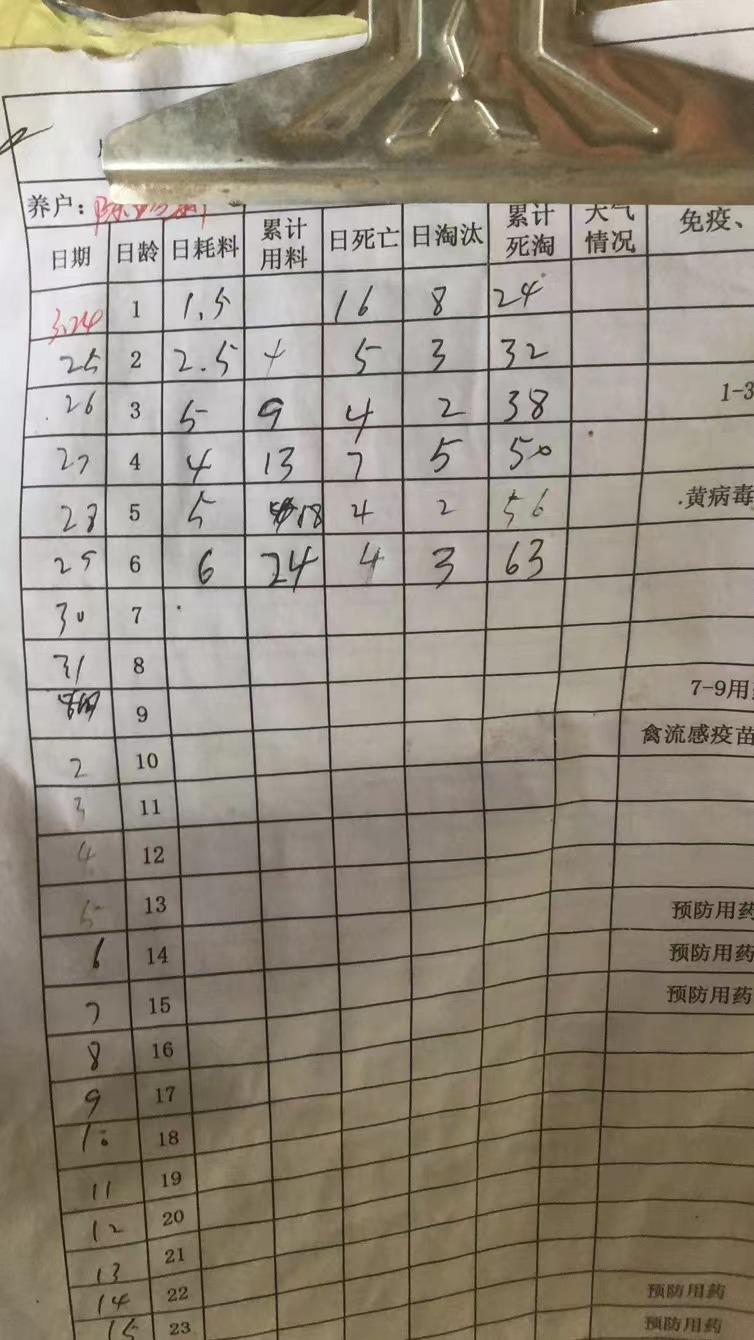 养户：
日期 日龄 日耗料 累计用料 日死亡 日淘汰 累计死淘 天气情况 免疫、
3.24 1 1.5 16 8 24
25 2 2.5 4 5 3 32
26 3 5 9 4 2 38 1-3
27 4 4 13 7 5 50
28 5 5 18 4 2 56 黄病毒
29 6 6 24 4 3 63
30 7
31 8
9 7-9用
2 10 禽流感疫苗
3 11
4 12
5 13 预防用药
6 14 预防用药
7 15 预防用药
8 16
9 17
10 18
11 19
12 20
13 21
14 22 预防用药
15 23 预防用药